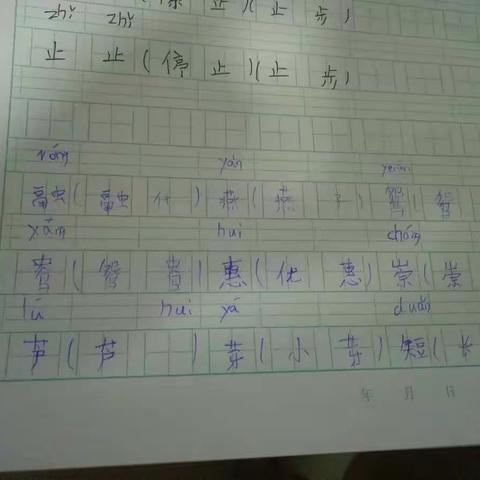 zhǐ zhǐ
止 止 ( 停 止 ) ( 止 步 )
róng yàn yuān
融 ( 融 化 ) 燕 ( 燕 子 ) 鸳 ( 鸳
yāng hui chóng
鸯 ( 鸳 鸯 ) 惠 ( 优 惠 ) 崇 ( 崇
lú hui yá duǎn
芦 ( 芦 ) 芽 ( 小 芽 ) 短 ( 长
年 月 日